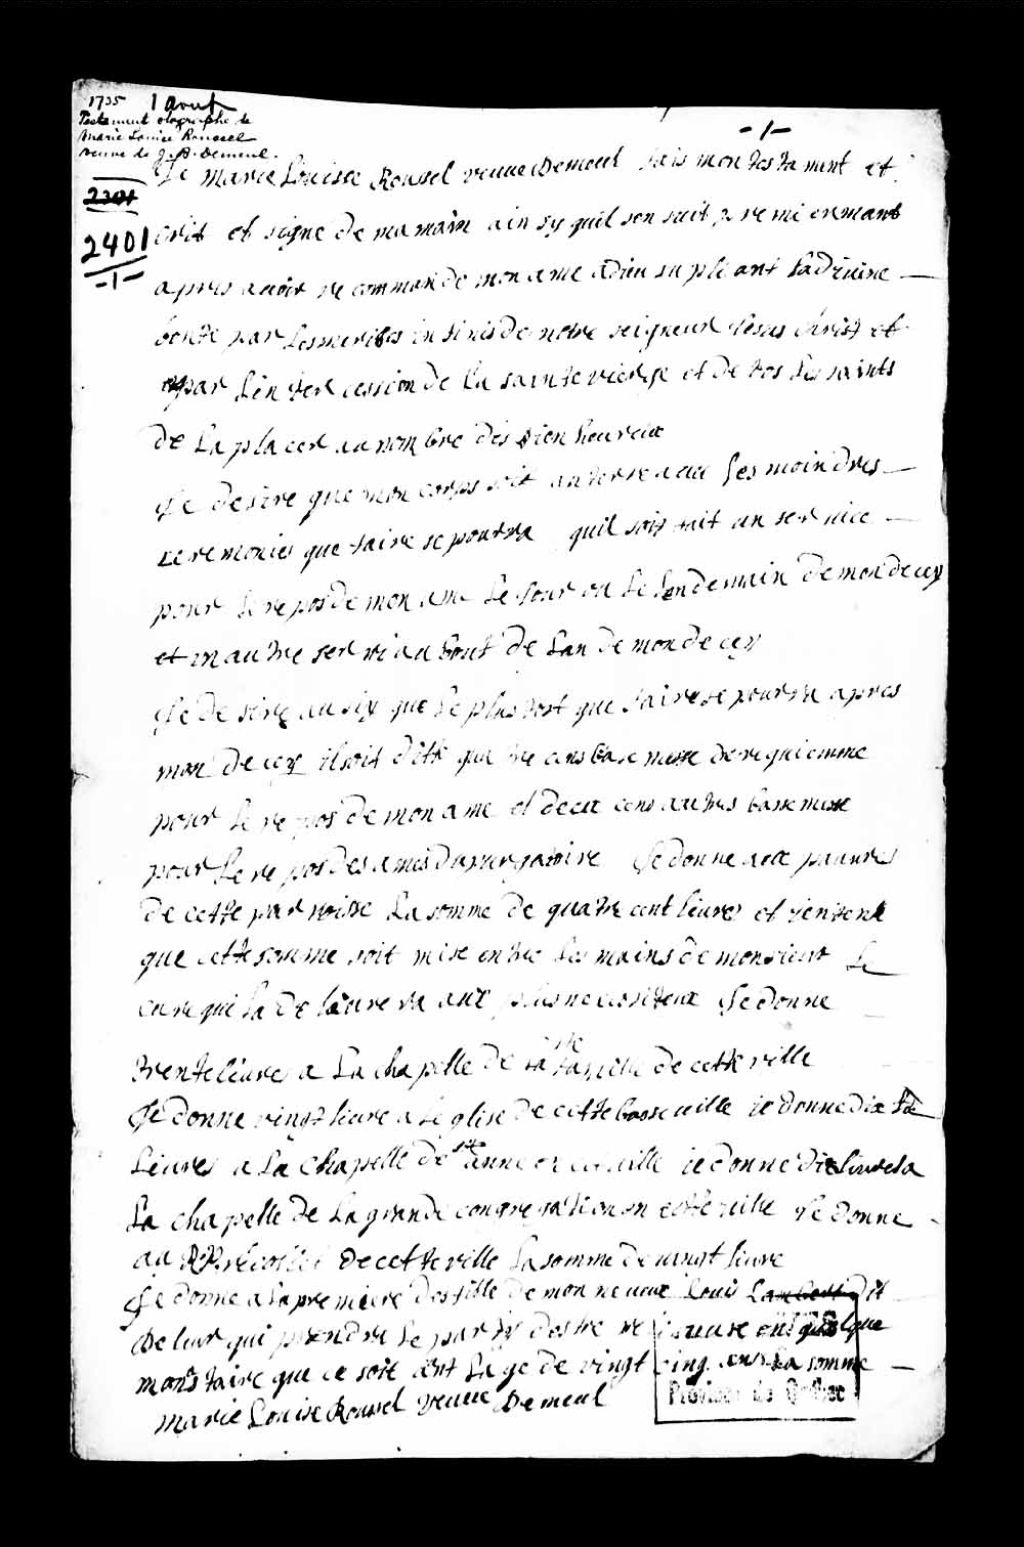 1735 1 aout
Testament olographe de
Marie Louise Roussel
veuve de J. B. Demeul.
-1-
2301
2401
-1-
Je marie Louisse Roussel veuue Demeul fais mon testament et
crit et signe de ma main ainsy quil sen suit premieremant
apres auoir recommandé mon ame a Dieu supliant sa diuine
bonte par les merites infinis de notre seigneur Jesus Christ et
par lintercession de la sainte vierge et de tos les saints
de la placer au nombre des bien houreux
Je desire que mon corps soit anterre auec les moindres
ceremonies que faire se poutra quil soit fait un seruice
pour le repos de mon ame le jour ou le lendemain de mon decey
et un autre servi au bout de lan de mon decey
Je desire ausy que le plustost que faire se pourra apres
mon decey il soit ditte que tre cens base messe de requiemme
pour le repos de mon ame et deux cens autres basse messe
pour le repos des ames du purgatoire Je donne aux pauures
de cette parroisse la somme de quatre cent liures et jentent
que cette somme soit mise entre les mains de monsieur le
cure qui la deliurera aux plus necessiteux Je donne
trente liures a la chapelle de la ste famille de cette ville
Je donne vingt liure a leglise de cette basse uille je donne dix
liures a la chapelle de ste anne en cet uille je donne dix liures a
la chapelle de la grande congregation en cette ville Je donne
au RP recollet de cette ville la somme de vingt liure
Je donne a la premiere des fille de mon neueu Louis Lambert dit
De lur qui prendra le party destre religieuse en quelque
monastaire que ce soit ant lage de vingt cinq ans la somme
marie Louise Roussel veuue Demeul
Province de Québec